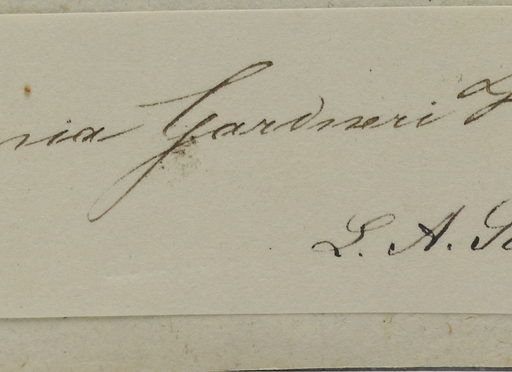 nia Gardneri
L. A. S